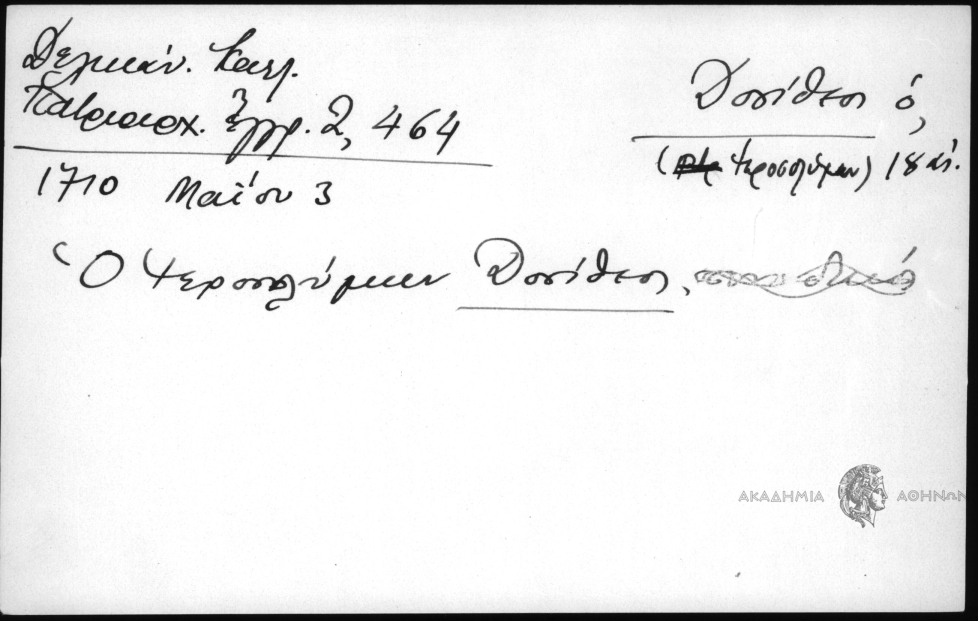 Δελικάν. Καλ.
Πατριαρχ. ἔγγρ. 2, 464
Δοσίθεος ὁ,
(Ἱεροσολύμων) 18 αἰ.
1710 Μαΐου 3
Ὁ Ἱεροσολύμων Δοσίθεος,
ΑΚΑΔΗΜΙΑ ΑΘΗΝΩΝ